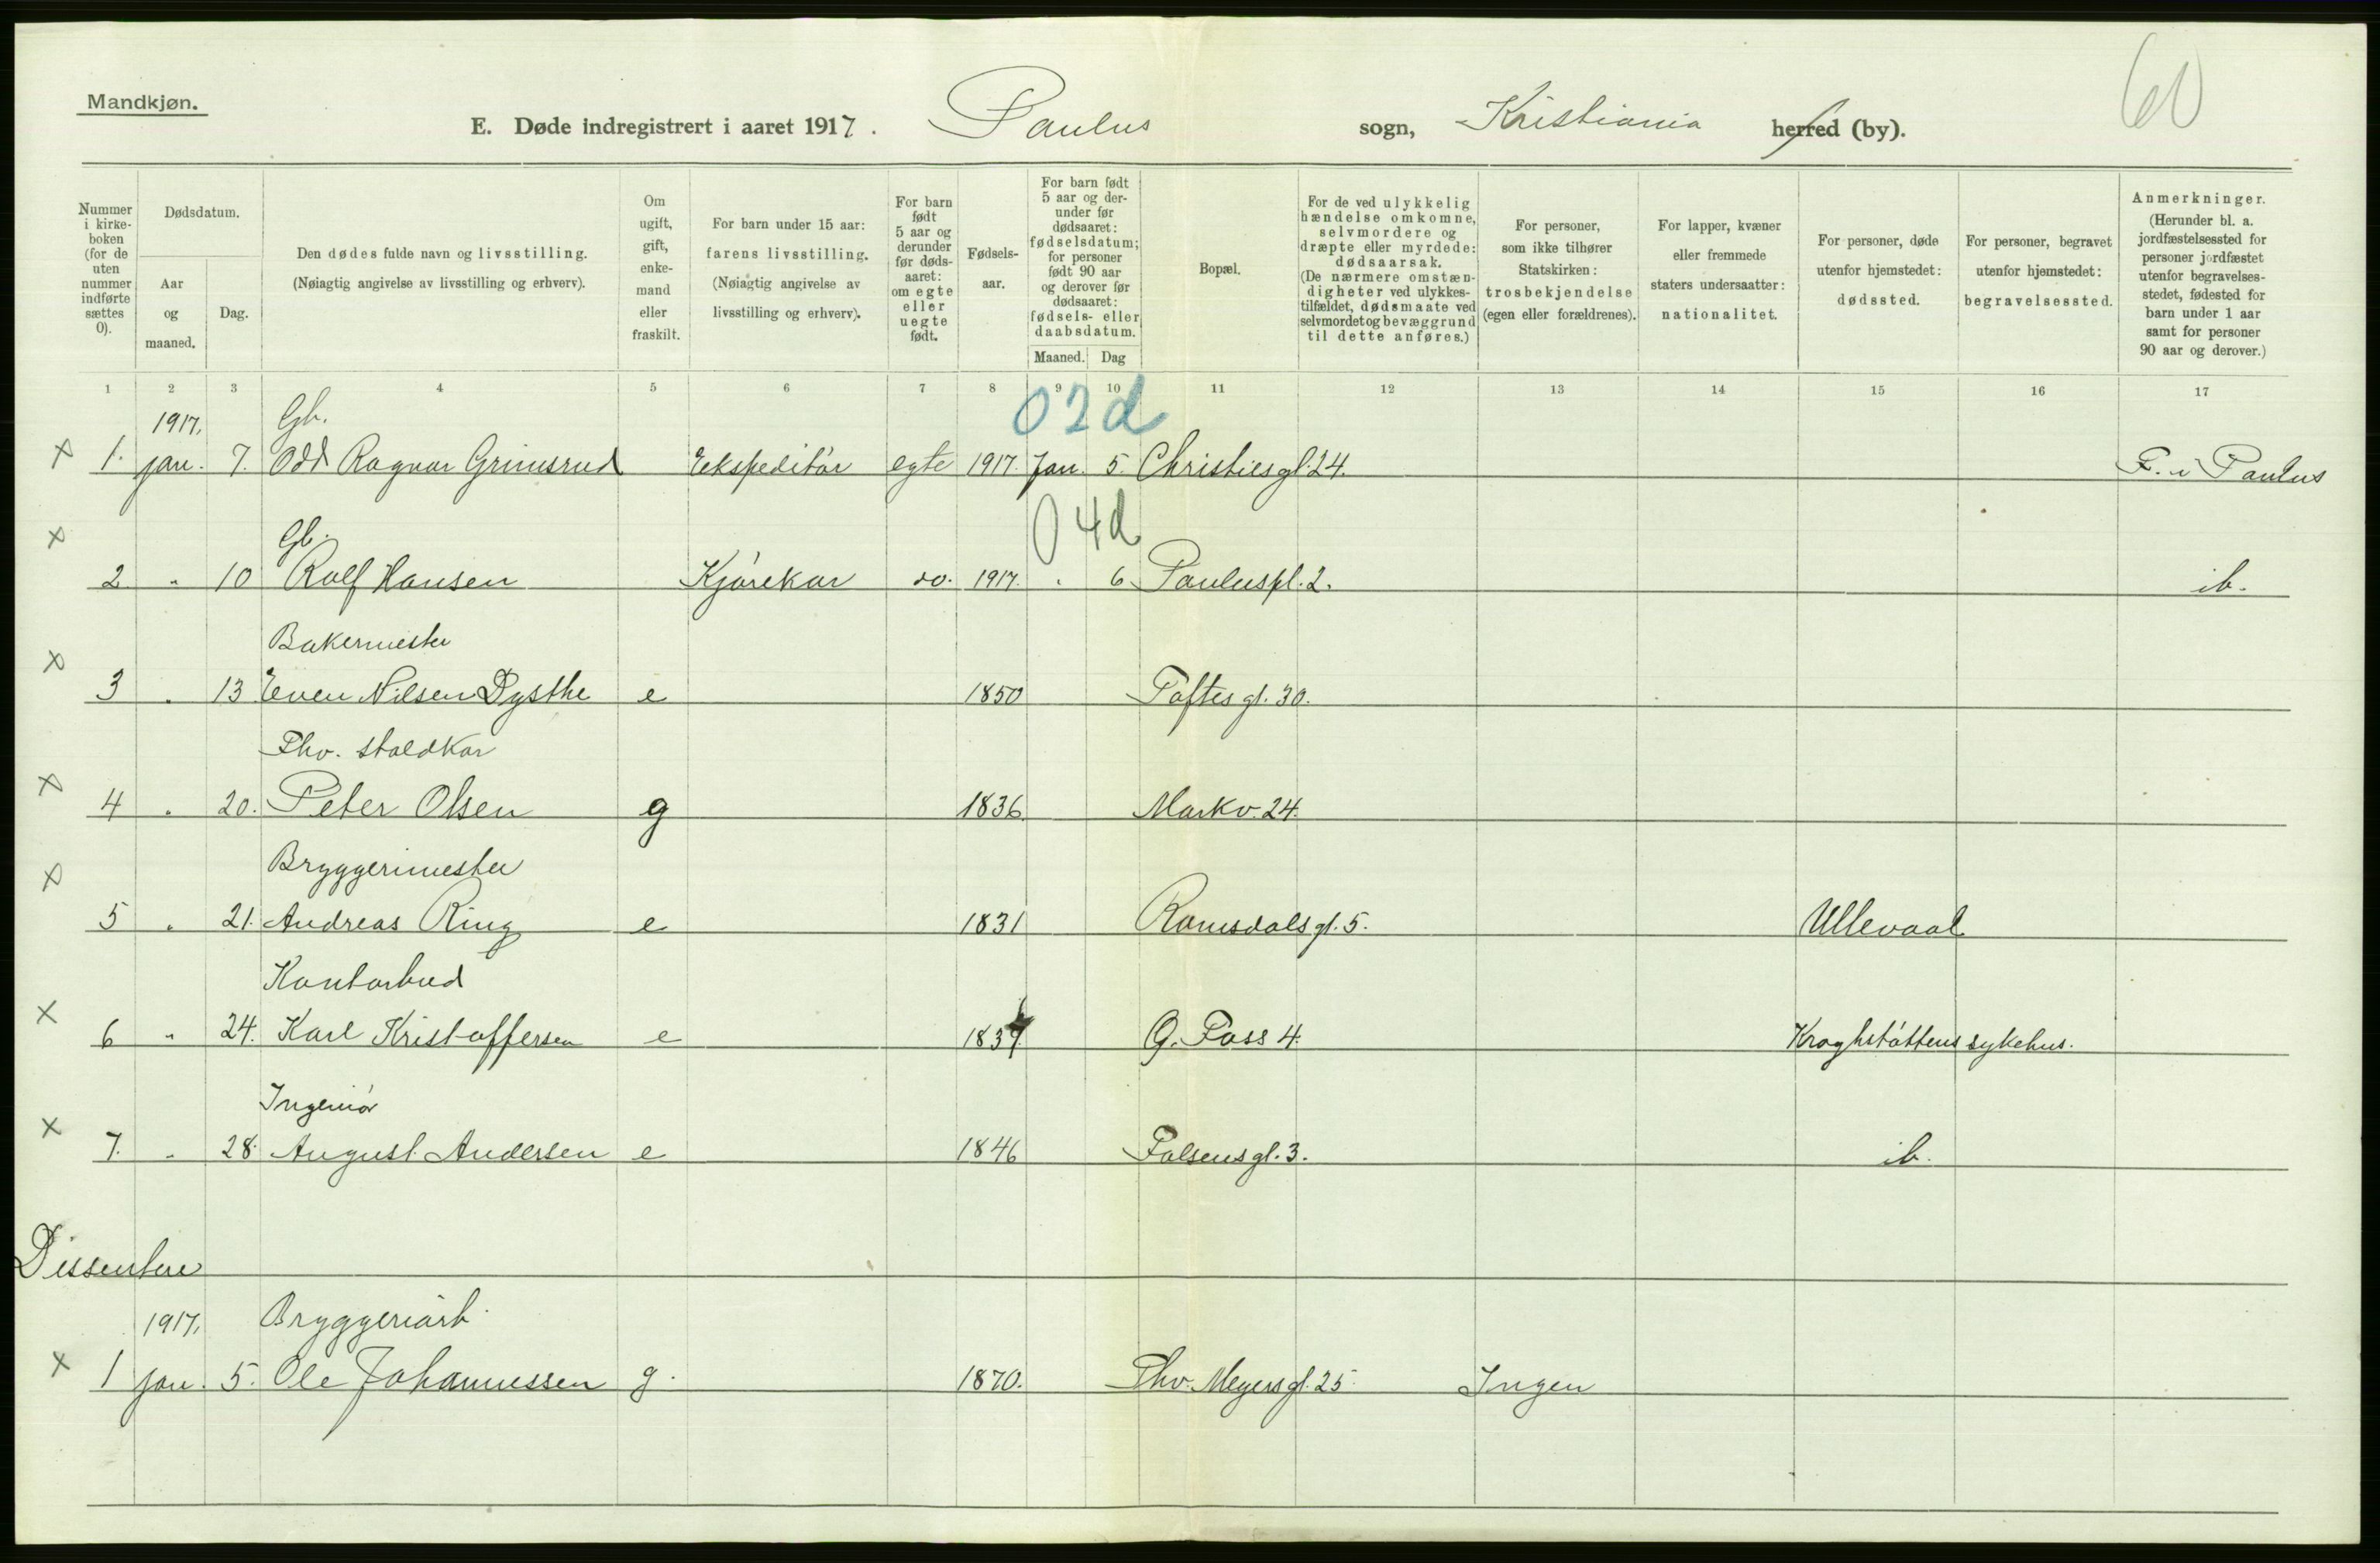 Mandkjøn.
60
E. Døde indregistrert i aaret 1917. Paulus sogn, Kristiania herred (by).
Nummer i kirkeboken (for de uten nummer indførte sættes 0).
Dødsdatum.
Aar og maaned.
Dag.
Den dødes fulde navn og livsstilling. (Nøiagtig angivelse av livsstilling og erhverv).
Om ugift, gift, enkemand eller fraskilt.
For barn under 15 aar: farens livsstilling. (Nøiagtig angivelse av livsstilling og erhverv).
For barn født 5 aar og derunder før dødsaaret: om egte eller uegte født.
Fødselsaar.
For barn født 5 aar og derunder før dødsaaret: fødselsdatum; for personer født 90 aar og derover før dødsaaret: fødsels- eller daabsdatum.
Maaned. Dag
Bopæl.
For de ved ulykkelig hændelse omkomne, selvmordere og dræpte eller myrdede: dødsaarsak. (De nærmere omstændigheter ved ulykkestilfældet, dødsmaate ved selvmordet og bevæggrund til dette anføres.)
For personer, som ikke tilhører Statskirken: trosbekjendelse (egen eller forældrenes).
For lapper, kvæner eller fremmede staters undersaatter: nationalitet.
For personer, døde utenfor hjemstedet: dødssted.
For personer, begravet utenfor hjemstedet: begravelsessted.
Anmerkninger. (Herunder bl. a. jordfæstelsessted for personer jordfæstet utenfor begravelsesstedet, fødested for barn under 1 aar samt for personer 90 aar og derover.)
1 2 3 4 5 6 7 8 9 10 11 12 13 14 15 16 17
1917. Gb. 02d
x 1. jan. 7. Odd Ragnar Grimsrud Ekspeditør egte 1917. Jan. 5. Christiesgt. 24. F. i Paulus
x Gb. 04d
2 " 10 Rolf Hansen Kjørekar do. 1917. " 6 Pauluspl. 2. ib.
Bakermester
x 3 " 13 Even Nilsen Dysthe e 1850 Toftesgt. 30.
Fhv. staldkar
x 4 " 20. Peter Olsen g 1836 Markv. 24.
Bryggerimester
x 5 " 21. Andreas Ring e 1831 Romsdalsgt. 5. Ullevaal
Kontorbud
x 6 " 24. Karl Kristoffersen e G. Foss 4. Kroghstøttens sykehus.
Ingeniør
x 7. " 28. August Andersen e 1846 Falsensgt. 3. ib.
Dissentere
1917. Bryggeriarb.
x 1 jan. 5. Ole Johannessen g. 1870. Thv. Meyersgt. 25 Ingen